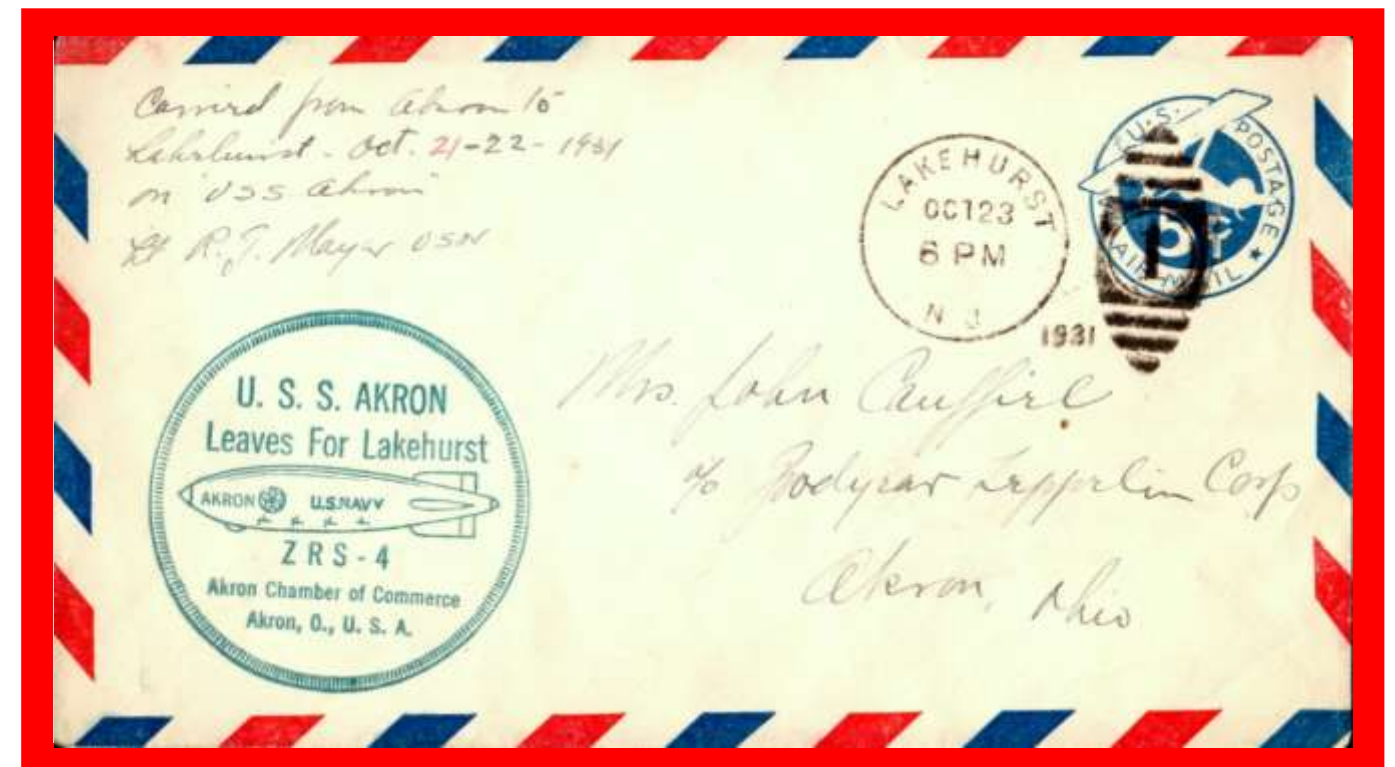 Carried from Akron to
Lakehurst - Oct. 21-22-1931
on "USS Akron"
Lt R.J. Mayer USN
LAKEHURST
OCT 23
6 PM
N J
1931
U.S. POSTAGE
5¢
AIR MAIL
1
U. S. S. AKRON
Leaves For Lakehurst
AKRON U.S.NAVY
ZRS-4
Akron Chamber of Commerce
Akron, O., U. S. A.
Mrs. John
c/o Goodyear Zeppelin Corp
Akron, Ohio